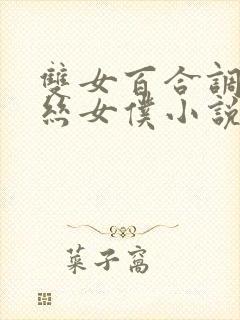 雙女百合調
絲女僕小說
菜子窩